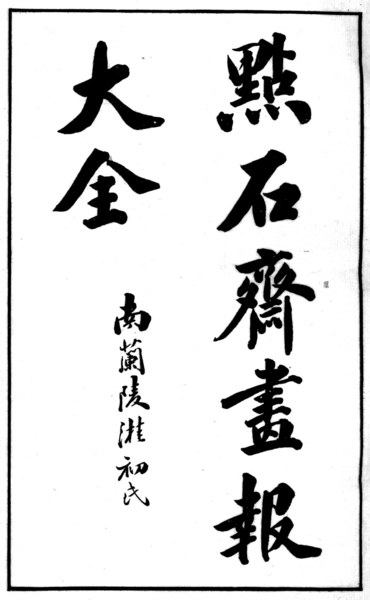 點石齋畫報
大全
南蘭陵灌初氏